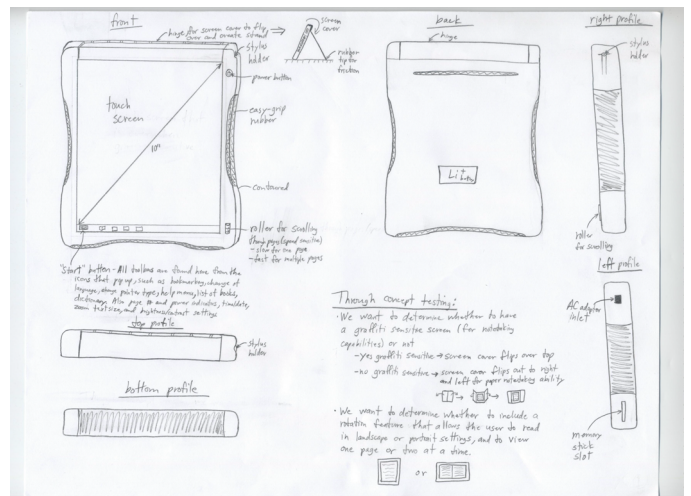 front
hinge for screen cover to flip
over and create stand
screen
cover
rubber
tip for
friction
stylus
holder
power button
easy-grip
rubber
touch
screen
10"
contoured
roller for scrolling
(through pages) (speed sensitive)
- slow for one page
- fast for multiple pages
"Start" button - All toolbars are found here from the
icons that pop up, such as bookmarking, change of
language, change pointer type, help menu, list of books,
dictionary. Also page # and power indicator, time/date,
text size, and brightness/contrast settings
top profile
stylus
holder
bottom profile
back
hinge
Li+
battery
right profile
stylus
holder
roller
for scrolling
left profile
AC adapter
inlet
memory
stick
slot
Through concept testing:
• We want to determine whether to have
a graffiti sensitive screen (for notetaking
capabilities) or not
- yes graffiti sensitive → screen cover flips over top
- no graffiti sensitive → screen cover flips out to right
and left for paper notetaking ability
• We want to determine whether to include a
rotation feature that allows the user to read
in landscape or portrait settings, and to view
one page or two at a time.
or